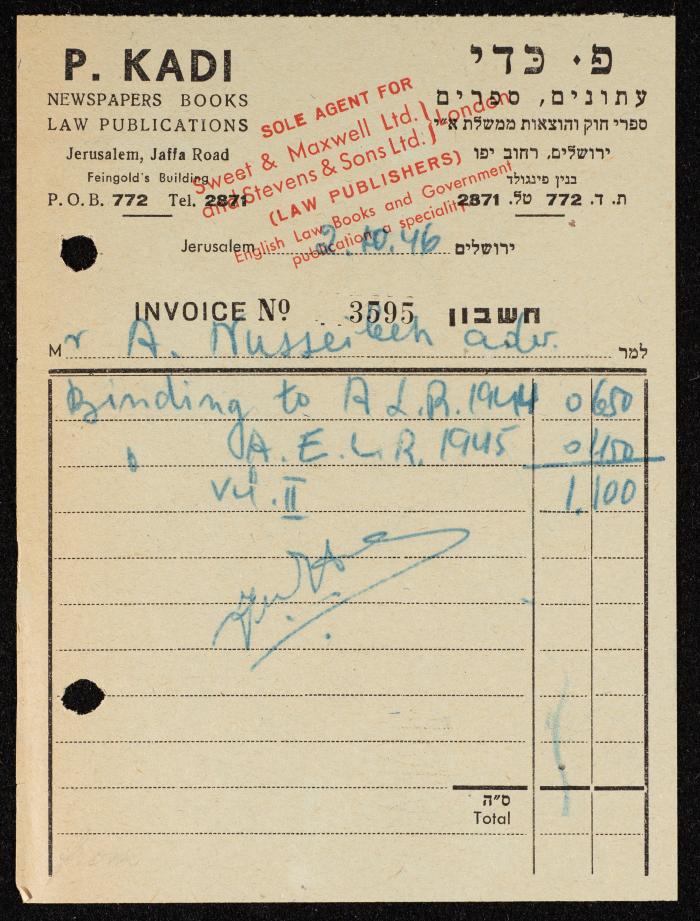 P. KADI
NEWSPAPERS BOOKS
LAW PUBLICATIONS
Jerusalem, Jaffa Road
Feingold's Building
P.O.B. 772 Tel. 2871
פ. כדי
עתונים, ספרים
ספרי חוק והוצאות ממשלת א"י
ירושלים, רחוב יפו
בנין פינגולד
ת. ד. 772 טל. 2871
SOLE AGENT FOR
Sweet & Maxwell Ltd. } London
and Stevens & Sons Ltd.
(LAW PUBLISHERS)
English Law Books and Government
publication a speciality
Jerusalem 2.10.46 ירושלים
INVOICE No 3595 חשבון
Mr A. Nusseibeh adv. למר
Binding to A L.R. 1944 0 650
" A.E.L.R. 1945 0 450
II 1.100
ס"ה
Total